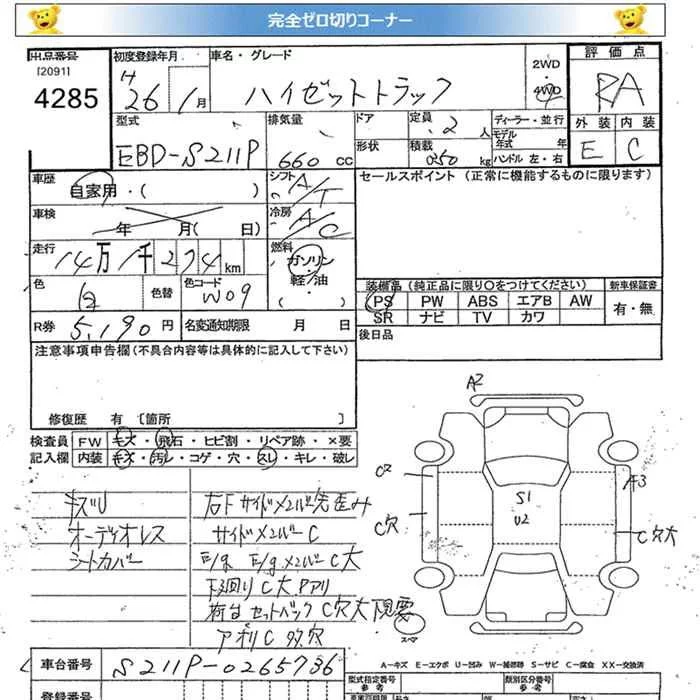 完全ゼロ切りコーナー
出品番号
[2091]
4285
初度登録年月
H 26 年 1月
車名・グレード
ハイゼットトラック
2WD
・4WD
評価点
RA
外装 内装
E C
型式
EBD-S211P
排気量
660 cc
ドア
形状
定員 2 人
積載 0350 kg
ディーラー・並行
モデル年式 年
ハンドル 左・右
車歴
自家用・( )
シフト A/T
セールスポイント (正常に機能するものに限ります)
車検
年 月( 日)
冷房 A/C
走行
14万1千274km
燃料
ガソリン
軽油
・( )
色 白
色替
色コード W09
装備品 (純正品に限り○をつけてください)
新車保証書
PS PW ABS エアB AW
有・無
SR ナビ TV カワ
R券 5,190円
名変通知期限 月 日
後日品
注意事項申告欄(不具合内容等は具体的に記入して下さい)
修復歴 有 [箇所 ]
検査員 FW キズ・飛石・ヒビ割・リペア跡・×要
記入欄 内装 キズ・汚レ・コゲ・穴・スレ・キレ・破レ
キズU
オーディオレス
シートカバー
右下サイドメンバー先歪み
サイドメンバーC
E/g. E/gメンバーC大
下廻りC大 Pアリ
荷台セットバックC穴大現要
アオリC 多穴
A2
C2
C穴
S1
U2
A3
C穴大
スペア
A-キズ E-エクボ U-凹み W-補修跡 S-サビ C-腐食 XX-交換済
車台番号 S211P-0265736
型式指定番号
参考
類別区分番号
参考
登録番号